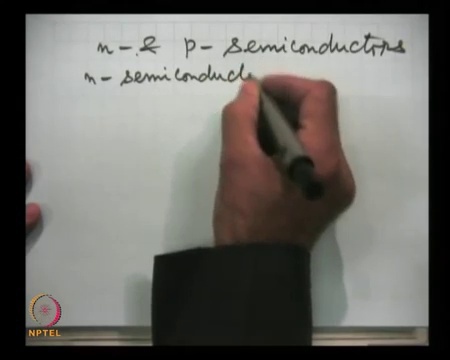 n- & p- semiconductors
n- semiconduct
NPTEL